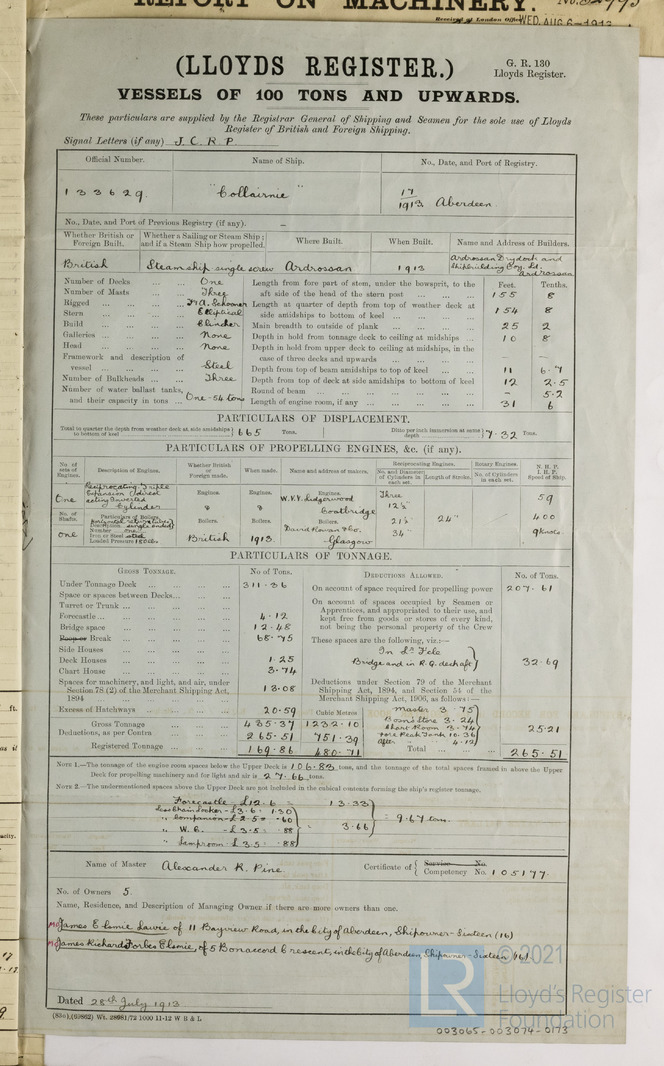 REPORT ON MACHINERY.
Received at London Office WED. AUG 6-1913
(LLOYDS REGISTER.)
G. R. 130
Lloyds Register.
VESSELS OF 100 TONS AND UPWARDS.
These particulars are supplied by the Registrar General of Shipping and Seamen for the sole use of Lloyds
Register of British and Foreign Shipping.
Signal Letters (if any) J. C. R. P.
Official Number. Name of Ship. No., Date, and Port of Registry.
133629. "Collairnie" 17/1913 Aberdeen.
No., Date, and Port of Previous Registry (if any). –
Whether British or Foreign Built. Whether a Sailing or Steam Ship; and if a Steam Ship how propelled. Where Built. When Built. Name and Address of Builders.
British Steamship single screw Ardrossan 1913 Ardrossan Drydock and Shipbuilding Coy. Ld. Ardrossan
Number of Decks ... One Length from fore part of stem, under the bowsprit, to the Feet. Tenths.
Number of Masts ... Three aft side of the head of the stern post 155 8
Rigged ... F & A. Schooner Length at quarter of depth from top of weather deck at
Stern ... Elliptical side amidships to bottom of keel 154 8
Build ... Clincher Main breadth to outside of plank 25 2
Galleries ... None Depth in hold from tonnage deck to ceiling at midships 10 8
Head ... None Depth in hold from upper deck to ceiling at midships, in the
Framework and description of case of three decks and upwards – –
vessel ... Steel Depth from top of beam amidships to top of keel 11 6.7
Number of Bulkheads ... Three Depth from top of deck at side amidships to bottom of keel 12 2.5
Number of water ballast tanks, Round of beam – 5.2
and their capacity in tons ... One - 54 tons Length of engine room, if any 31 6
PARTICULARS OF DISPLACEMENT.
Total to quarter the depth from weather deck at side amidships to bottom of keel 665 Tons. Ditto per inch immersion at same depth 7.32 Tons.
PARTICULARS OF PROPELLING ENGINES, &c. (if any).
No. of sets of Engines. Description of Engines. Whether British or Foreign made. When made. Name and address of makers. Reciprocating Engines. Rotary Engines. N. H. P. I. H. P. Speed of Ship.
No. and Diameter of Cylinders in each set. Length of Stroke. No. of Cylinders in each set.
One Reciprocating Triple Expansion Direct acting Inverted Cylinder Engines. Engines. Engines. W. V. V. Lidgerwood Coatbridge Three 12½ 59
No. of Shafts. Particulars of Boilers. Boilers. Boilers. Boilers. David Rowan & Co. 21½ 24" 400
One Number one Iron or Steel steel Loaded Pressure 180 lbs British 1913. Glasgow 34 9 knots
PARTICULARS OF TONNAGE.
GROSS TONNAGE. No of Tons. DEDUCTIONS ALLOWED. No. of Tons.
Under Tonnage Deck 311.36 On account of space required for propelling power 207.61
Space or spaces between Decks On account of spaces occupied by Seamen or
Turret or Trunk Apprentices, and appropriated to their use, and
Forecastle 4.12 kept free from goods or stores of every kind,
Bridge space 12.48 not being the personal property of the Crew
Poop or Break 68.75 These spaces are the following, viz.:—
Side Houses In Fo'c'le
Deck Houses 1.25 Bridge and in R. Q. deck aft 32.69
Chart House 3.74
Spaces for machinery, and light, and air, under Section 78 (2) of the Merchant Shipping Act, 1894 13.08
Deductions under Section 79 of the Merchant Shipping Act, 1894, and Section 54 of the Merchant Shipping Act, 1906, as follows:—
Excess of Hatchways 20.59 Cubic Metres Master 3.75
Gross Tonnage 435.37 1232.10 Bosn's Store 3.24
Deductions, as per Contra 265.51 751.39 Chart Room 3.74 Fore Peak Tank 10.36 After 4.12 25.21
Registered Tonnage 169.86 480.71 Total 265.51
NOTE 1.—The tonnage of the engine room spaces below the Upper Deck is 106.83 tons, and the tonnage of the total spaces framed in above the Upper
Deck for propelling machinery and for light and air is 27.66 tons.
NOTE 2.—The undermentioned spaces above the Upper Deck are not included in the cubical contents forming the ship's register tonnage.
Forecastle - £12.6 13.33
Less Chain Locker - £3.6 1.30
" Companion - £2.5 .60
" W. C. - £3.5 .88 3.66 = 9.67 tons.
" Lamproom £3.5 .88
Name of Master Alexander R. Pine Certificate of { Service No. Competency No. 105177.
No. of Owners 5.
Name, Residence, and Description of Managing Owner if there are more owners than one.
Mo James Elsmie Lawie of 11 Bayview Road, in the City of Aberdeen, Shipowner - Sixteen (16)
Mo James Richard Forbes Elsmie, of 5 Bonaccord Crescent, in the City of Aberdeen, Shipowner - Sixteen (16)
Dated 28th July 1913
(85o), (60862) Wt. 28981/72 1000 11-12 W B & L
LR
© 2021
Lloyd's Register
Foundation
003065-003074-0173